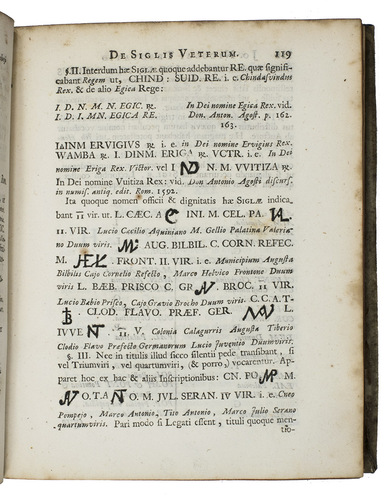 De Siglis Veterum. 119
§. II. Interdum hæ Siglæ quoque addebantur RE. quæ signifi-
cabant Regem ut, CHIND : SUID. RE. i. e. Chindasvindus
Rex. & de alio Egica Rege:
I. D. N. M. N. EGIC. &c. In Dei nomine Egica Rex. vid.
I. D. I. MN. EGICA RE. Don. Anton. Agost. p. 162.
163.
ERVIGIUS &c. i. e. in Dei nomine Ervigius Rex.
WAMBA &c. I. DINM. ERIGA &c. VCTR. i. e. In Dei
nomine Eriga Rex. Victor. vel I N. M. VVITIZA &c.
In Dei nomine Vuitiza Rex: vid. Don Antonio Agosti discurs.
in numis. antiq. edit. Rom. 1592.
Ita quoque nomen officii & dignitatis hæ Siglæ indica,
bant II vir. ut L. CÆC. A INI. M. CEL. PA
II. VIR. Lucio Cecilio Aquiniano M. Gellio Palatina Valeria-
no Duum viris. AUG. BILBIL. C. CORN. REFEC.
M. FRONT. II. VIR. i. e. Municipium Augusta
Bilbilis Cajo Cornelio Refecto, Marco Helvico Frontone Duum
viris L. BÆB. PRISCO C. BROC. II VIR.
Lucio Babio Prisco, Cajo Gravio Brocho Duum viris. C. C. A. T.
CLOD. FLAVO. PRÆF. GER. L.
IVVE II. V. Colonia Calagurris Augusta Tiberio
Clodio Flavo Præfecto Germanorum Lucio Juventio Duumviris.
§. III. Nec in titulis illud sicco silentii pede transibant, si
vel Triumviri, vel quartumviri, (& porro,) vocarentur. Ap-
paret hoc ex hac & aliis Inscriptionibus: CN. PO M
O. TA O. M. JVL. SERAN. IV VIR. i. e. Cneo
Pompejo, Marco Antonio, Tito Antonio, Marco Julio Serano
quartumviris. Pari modo si Legati essent, tituli quoque men-
tio-